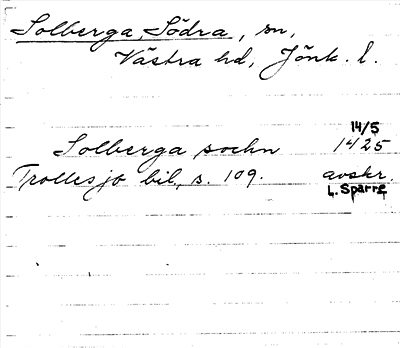 Solberga, Södra, sn,
Västra hd, Jönk. l.
14/5
Solberga sochn 1425
Trollesjö bil, s. 109. avskr.
L. Sparre